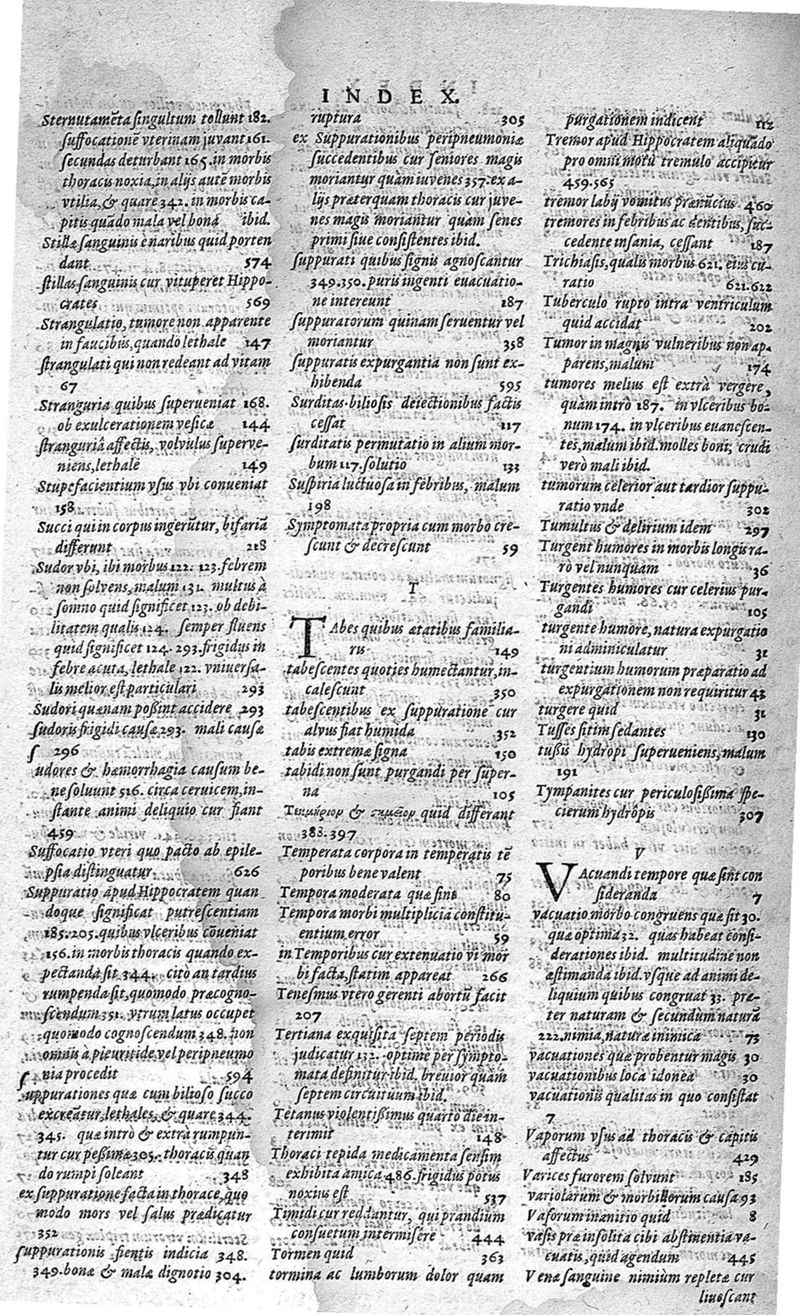 INDEX.
Sternutamẽta singultum tollunt 182.
suffocationẽ vterinam juvant 161.
secundas deturbant 165. in morbis
thoracis noxia, in alijs autẽ morbis
vtilia, & quare 342. in morbis ca-
pitis quãdo mala vel bona ibid.
Stillæ sanguinis è naribus quid porten
dant 574
stillas sanguinis cur vituperet Hippo-
crates 569
Strangulatio, tumore non apparente
in faucibus, quando lethale 147
strangulati qui non redeant ad vitam
67
Stranguria quibus superueniat 168.
ob exulcerationem vesicæ 144
stranguriâ affectis, volvulus superve-
niens, lethale 149
Stupefacientium vsus vbi conueniat
158
Succi qui in corpus ingerũtur, bifariã
differunt 218
Sudor vbi, ibi morbus 122. 123. febrem
non solvens, malum 131. multus à
somno quid significet 123. ob debi-
litatem qualis 124. semper fluens
quid significet 124. 293. frigidus in
febre acuta, lethale 122. vniuersa-
lis melior est particulari 293
Sudori quænam poßint accidere 293
sudoris frigidi causa 293. mali causæ
s 296
udores & hæmorrhagia causum be-
ne soluunt 516. circa ceruicem, in-
stante animi deliquio cur fiant
459
Suffocatio vteri quo pacto ab epile-
psia distinguatur 626
Suppuratio apud Hippocratem quan
doque significat putrescentiam
185. 205. quibus vlceribus cõueniat
156. in morbis thoracis quando ex-
pectanda sit 344. citò an tardius
rumpenda sit, quomodo præcogno-
scendum 351. vtrum latus occupet
quomodo cognoscendum 348. non
omnis à pleuritide vel peripneumo
nia procedit 594
suppurationes quæ cum bilioso succo
excreãtur, lethales, & quare 344.
345. quæ intrò & extrà rumpun-
tur cur peßima 305. thoracis quan
do rumpi soleant 348
ex suppuratione facta in thorace, quo
modo mors vel salus prædicatur
352
suppurationis fientis indicia 348.
349. bonæ & malæ dignotio 304.
ruptura 305
ex Suppurationibus peripneumoniæ
succedentibus cur seniores magis
moriantur quàm iuvenes 357. ex a-
lijs præterquam thoracis cur juve-
nes magis moriantur quàm senes
primi siue consistentes ibid.
suppurati quibus signis agnoscantur
349. 350. puris ingenti euacuatio-
ne intereunt 187
suppuratorum quinam seruentur vel
moriantur 358
suppuratis expurgantia non sunt ex-
hibenda 595
Surditas biliosis deiectionibus factis
cessat 117
surditatis permutatio in alium mor-
bum 117. solutio 133
Suspiria luctuosa in febribus, malum
198
Symptomata propria cum morbo cre-
scunt & decrescunt 59
T
TAbes quibus ætatibus familia-
ris 149
tabescentes quoties humectantur, in-
calescunt 350
tabescentibus ex suppuratione cur
alvus fiat humida 352
tabis extremæ signa 150
tabidi non sunt purgandi per super-
na 105
Τεκμήριον & σημεῖον quid differant
388. 397
Temperata corpora in temperatis tẽ
poribus bene valent 75
Tempora moderata quæ sint 80
Tempora morbi multiplicia constitu-
entium error 59
in Temporibus cur extenuatio vi mor
bi facta, statim appareat 266
Tenesmus vtero gerenti abortũ facit
207
Tertiana exquisita septem periodis
judicatur 132. optime per sympto-
mata definitur ibid. brevior quàm
septem circuituum ibid.
Tetanus violentissimus quarto die in-
terimit 148
Thoraci tepida medicamenta sensim
exhibita amica 486. frigidus potus
noxius est 537
Timidi cur reddantur, qui prandium
consuetum intermisere 444
Tormen quid 363
tormina ac lumborum dolor quam
purgationem indicent 112
Tremor apud Hippocratem aliquãdo
pro omni motu tremulo accipitur
459. 565
tremor labij vomitus prænũcius 460
tremores in febribus ac dentibus, suc-
cedente insania, cessant 187
Trichiasis, qualis morbus 621. eius cu-
ratio 621. 622
Tuberculo rupto intra ventriculum
quid accidat 202
Tumor in magnis vulneribus non ap-
parens, malum 174
tumores melius est extrà vergere,
quàm intrò 187. in vlceribus bo-
num 174. in vlceribus euanescen-
tes, malum ibid. molles boni, crudi
verò mali ibid.
tumorum celerior aut tardior suppu-
ratio vnde 302
Tumultus & delirium idem 297
Turgent humores in morbis longis ra-
rò vel nunquam 36
Turgentes humores cur celerius pur-
gandi 105
turgente humore, natura expurgatio
ni adminiculatur 31
turgentium humorum præparatio ad
expurgationem non requiritur 42
turgere quid 31
Tusses sitim sedantes 130
tußis hydropi superueniens, malum
191
Tympanites cur periculosißima spe-
cierum hydropis 307
V
VAcuandi tempore quæ sint con
sideranda 7
vacuatio morbo congruens quæ sit 30.
quæ optima 32. quas habeat consi-
derationes ibid. multitudine non
æstimanda ibid. vsque ad animi de-
liquium quibus congruat 33. præ-
ter naturam & secundum naturã
222. nimia, naturæ inimica 73
vacuationes quæ probentur magis 30
vacuationibus loca idonea 30
vacuationis qualitas in quo consistat
7
Vaporum vsus ad thoracis & capitis
affectus 429
Varices furorem solvunt 185
variolarum & morbillorum causa 93
Vasorum inanitio quid 8
vasis præ insolita cibi abstinentia va-
cuatis, quid agendum 445
Venæ sanguine nimium repletæ cur
liuescant